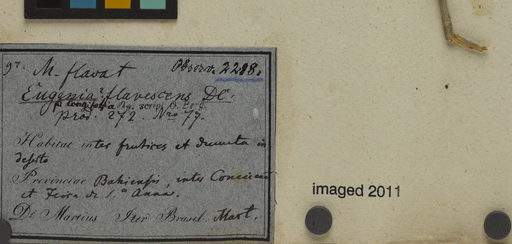 97. M. flava t Observ. 2288.
Eugenia flavescens DC.
β longifolia Bg. scrips.
prod. 272. Nro 77.
Habitat inter frutices et dumeta in
deserto
Provinciae Bahiensis, inter Conceicao
et Feira de S.ª Anna.
De Martius Iter Brasil. Mart.
imaged 2011